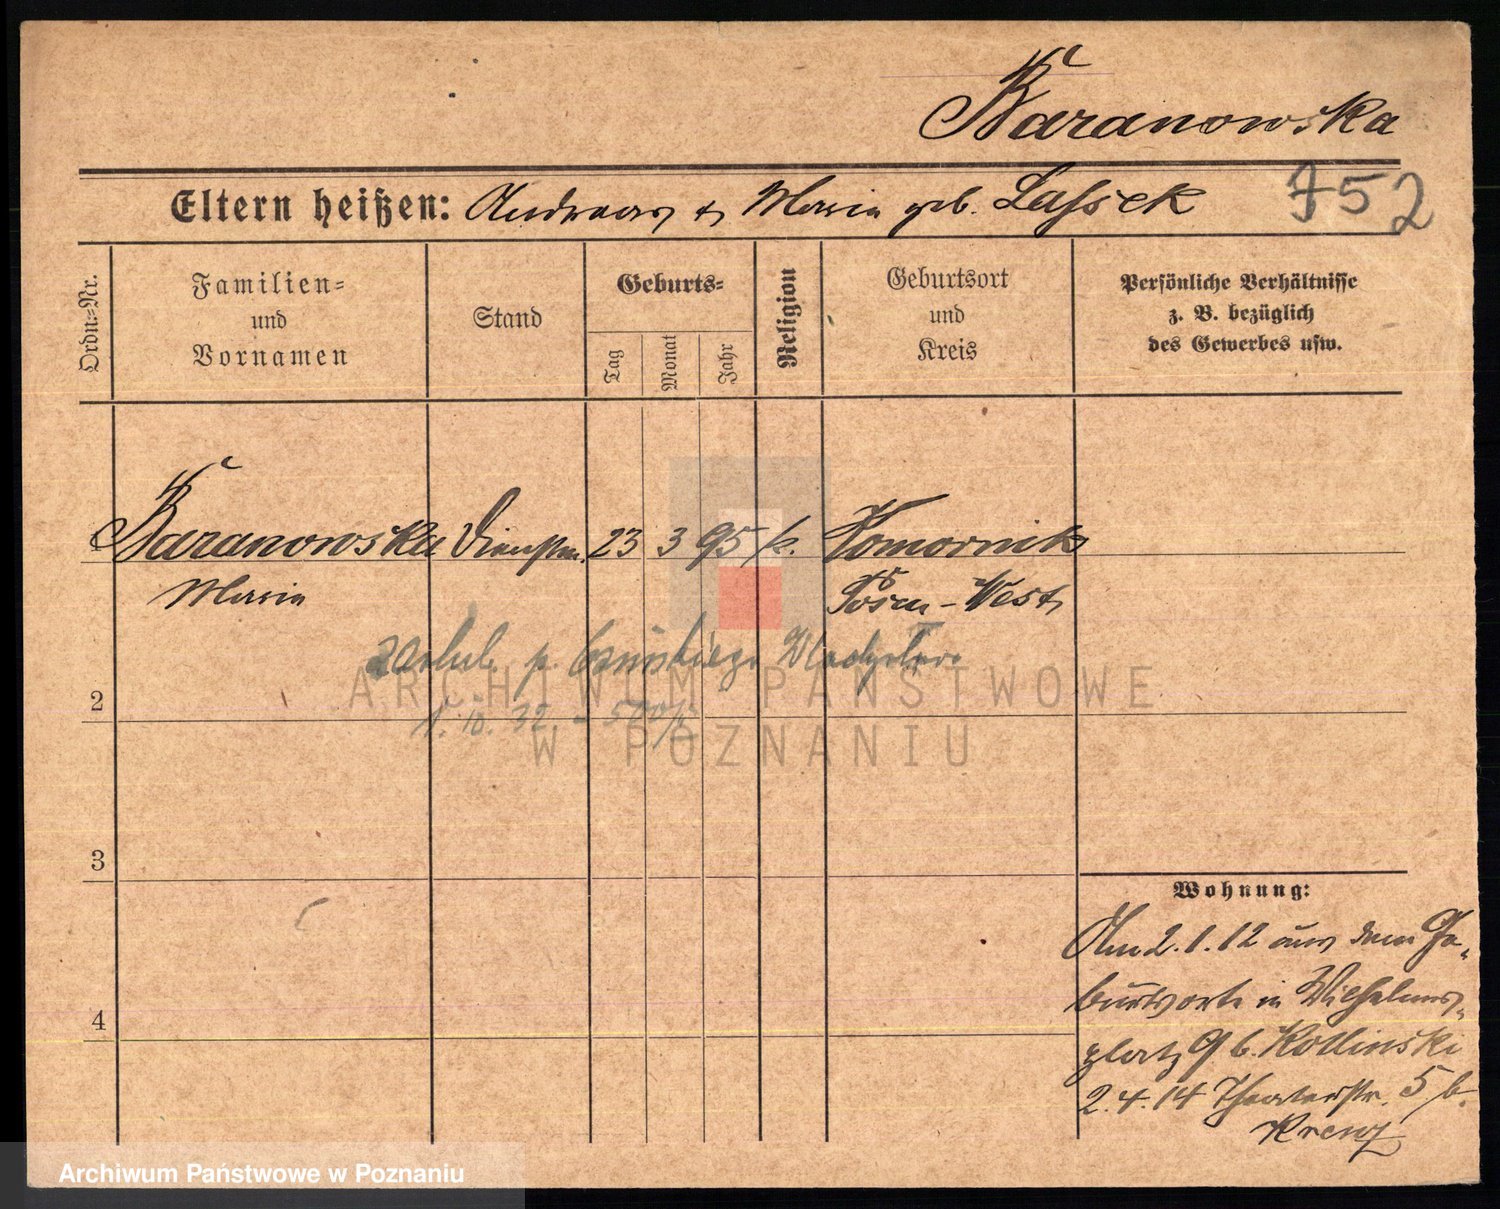 Baranowska
Eltern heißen: Andreas u Maria geb. Lassek
752
Ordn.=Nr.
Familien=
und
Vornamen
Stand
Geburts=
Tag
Monat
Jahr
Religion
Geburtsort
und
Kreis
Persönliche Verhältnisse
z. B. bezüglich
des Gewerbes usw.
1 Baranowska Dienstm. 23 3 95 k. Komornik
Maria Posen-West
zaślub. p. Władysław
2 1. 10. 32. -
3
Wohnung:
Am 2.1.12 aus dem Ge-
burtsorte in Wilhelms-
4
platz 9 b. Kollinski
2.4.14 Theaterstr. 5 b.
Krenz
ARCHIWUM PAŃSTWOWE
W POZNANIU
Archiwum Państwowe w Poznaniu